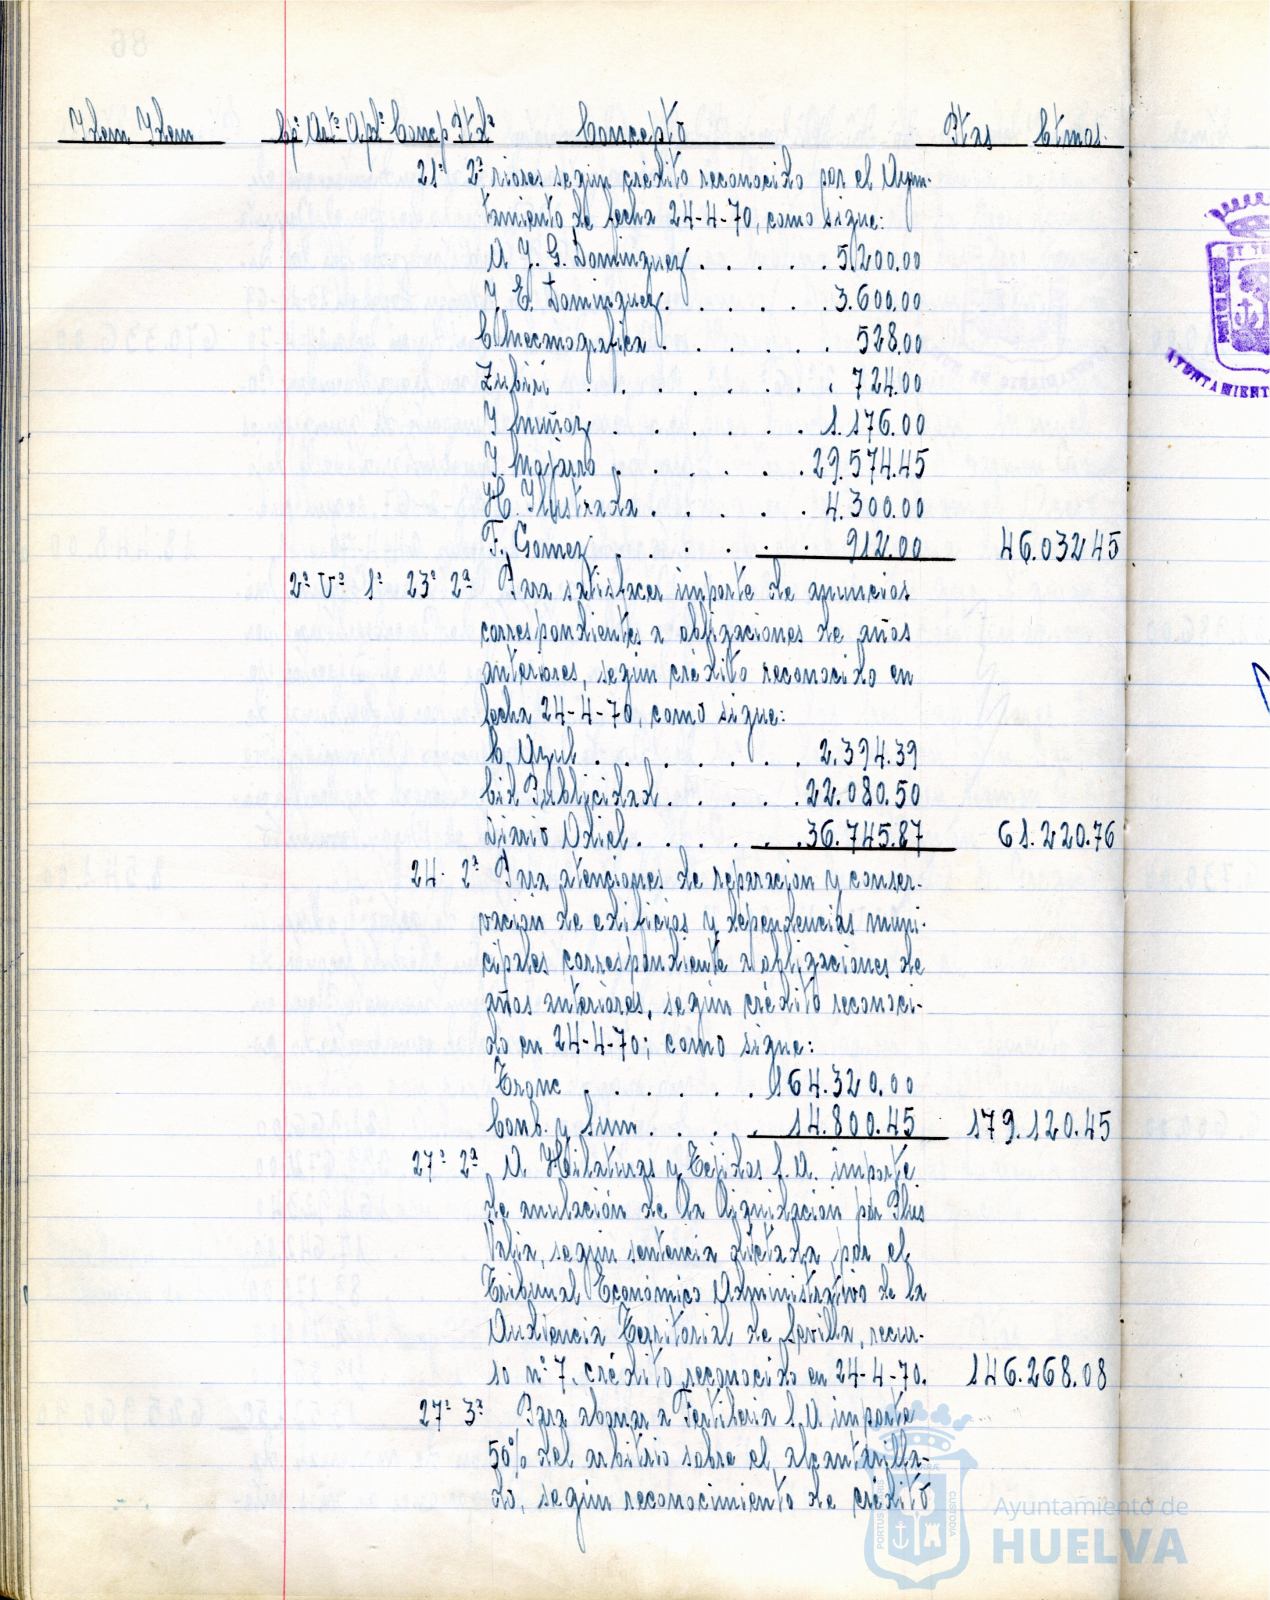 Idem Idem Cpº Artº Apdº Concp Ptdª Concepto Ptas Ctmos.
21º 2ª riores según crédito reconocido por el Ayun-
tamiento de fecha 24-4-70, como sigue:
A J. G. Dominguez . . . . 5.200.00
J. C. Dominguez . . . . . 3.600.00
C Mecanografica . . . . . . 528.00
Zubiri . . . . . . . 724.00
J Muñoz . . . . . . . 1.176.00
J. Mojarro . . . . . . 29.574.45
H. Ilustrada . . . . . 4.300.00
F. Gomez . . . . . . 912.00 46.032 45
2º Vº 1º 23º 2ª Para satisfacer importe de anuncios
correspondientes a obligaciones de años
anteriores, según crédito reconocido en
fecha 24-4-70, como sigue:
C. Azul . . . . . . . 2.394.39
Cid Publicidad . . . . . 22.080.50
Diario Odiel . . . . . . 36.745.87 61.220.76
24. 2ª Para atenciones de reparación y conser-
vación de edificios y dependencias muni-
cipales correspondiente a obligaciones de
años anteriores, según crédito reconoci-
do en 24-4-70; como sigue:
Tronc . . . . . . 164.320.00
Conb. y Sum . . . . 14.800.45 179.120.45
27º 2ª A Hilaturas y Tejidos S.A. importe
de anulación de la liquidación por Plus
Valia, según sentencia dictada por el
Tribunal Económico Administrativo de la
Audiencia Territorial de Sevilla, recur-
so nº 7, crédito reconocido en 24-4-70. 146.268.08
27º 3ª Para abonar a Fertiberia S.A importe
50% del arbitrio sobre el alcantarilla-
do, según reconocimiento de crédito
AYUNTAMIENT
Ayuntamiento de
HUELVA